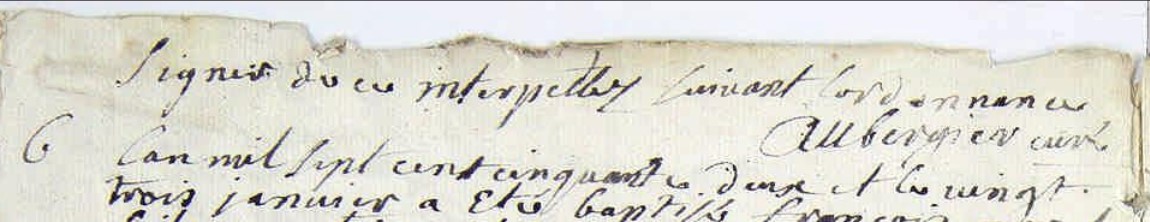 signer de ce interpellez suivant lordonnance
Aubergier curé
6 Lan mil sept cent cinquante deux et le vingt
trois janvier a eté baptisé françois